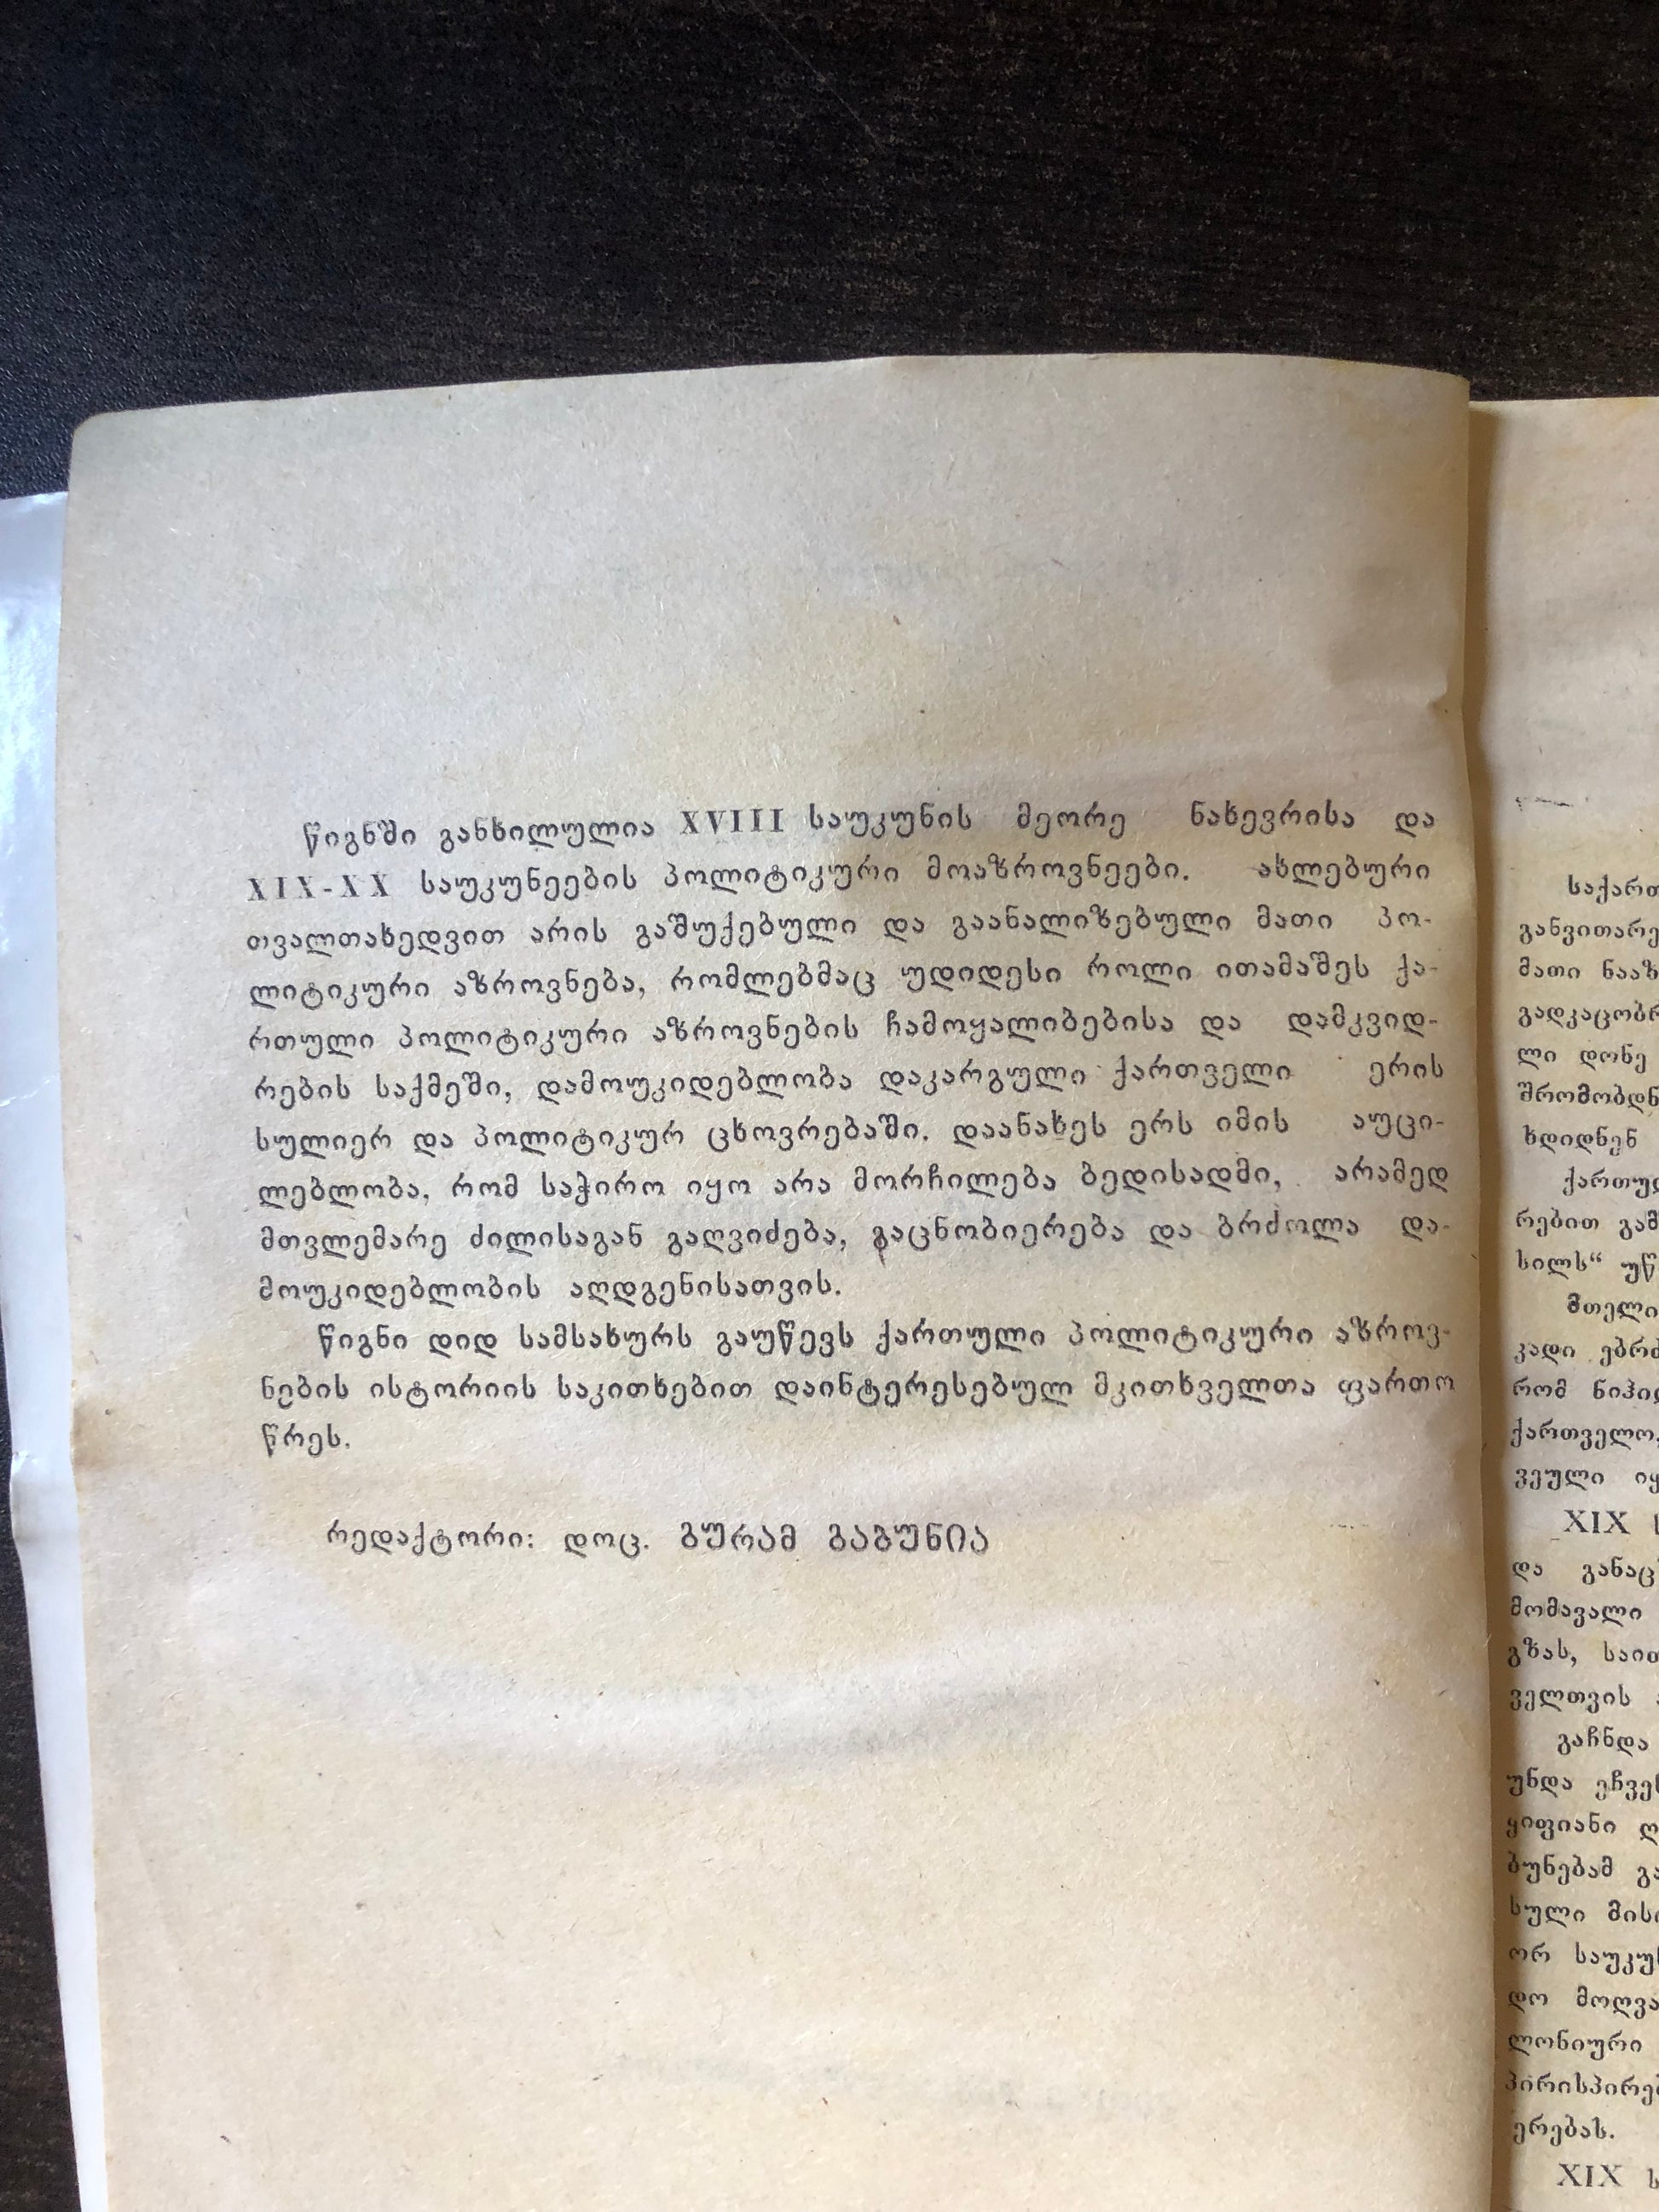 წიგნში განხილულია XVIII საუკუნის მეორე ნახევრისა და
XIX-XX საუკუნეების პოლიტიკური მოაზროვნეები. ახლებური
თვალთახედვით არის გაშუქებული და გაანალიზებული მათი პო-
ლიტიკური აზროვნება, რომლებმაც უდიდესი როლი ითამაშეს ქა-
რთული პოლიტიკური აზროვნების ჩამოყალიბებისა და დამკვიდ-
რების საქმეში, დამოუკიდებლობა დაკარგული ქართველი ერის
სულიერ და პოლიტიკურ ცხოვრებაში. დაანახეს ერს იმის აუცი-
ლებლობა, რომ საჭირო იყო არა მორჩილება ბედისადმი, არამედ
მთვლემარე ძილისაგან გაღვიძება, გაცნობიერება და ბრძოლა და-
მოუკიდებლობის აღდგენისათვის.
წიგნი დიდ სამსახურს გაუწევს ქართული პოლიტიკური აზროვ-
ნების ისტორიის საკითხებით დაინტერესებულ მკითხველთა ფართო
წრეს.
რედაქტორი: დოც. გურამ გაგუნია
განვითარე
მათი ნააზ
ლი დონე
ხდიდნენ
რებით გამ
სილს“ უწ
მთელი
კადი ებრძ
ვეული იყ
XIX ს
და განაც
მომავალი
გზას, საით
ველთვის
გაჩნდა
უნდა ეჩვენ
ყიფიანი ღ
ბუნებამ გა
სული მისი
ორ საუკუნ
დო მოღვა
ლონიური
პირისპირებ
ერებას.
XIX ს